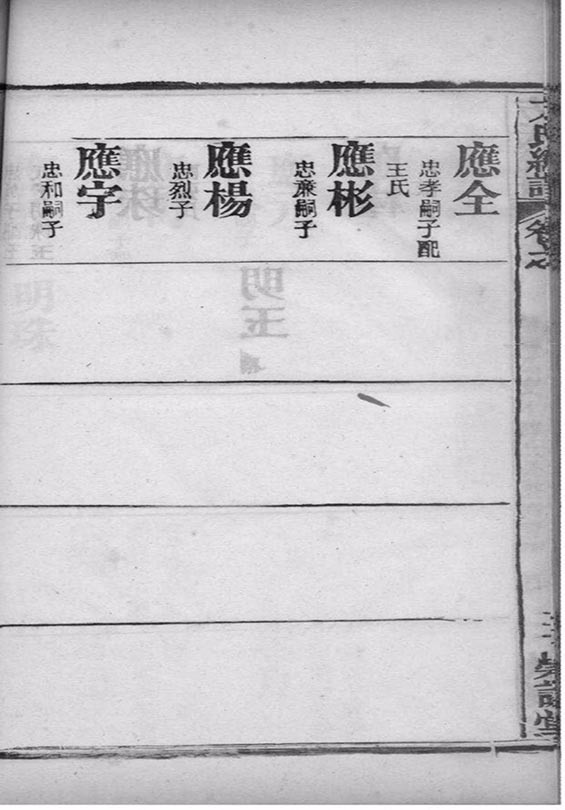 應全
忠孝嗣子配
王氏
應彬
忠亷嗣子
應楊
忠烈子
應宇
忠和嗣子